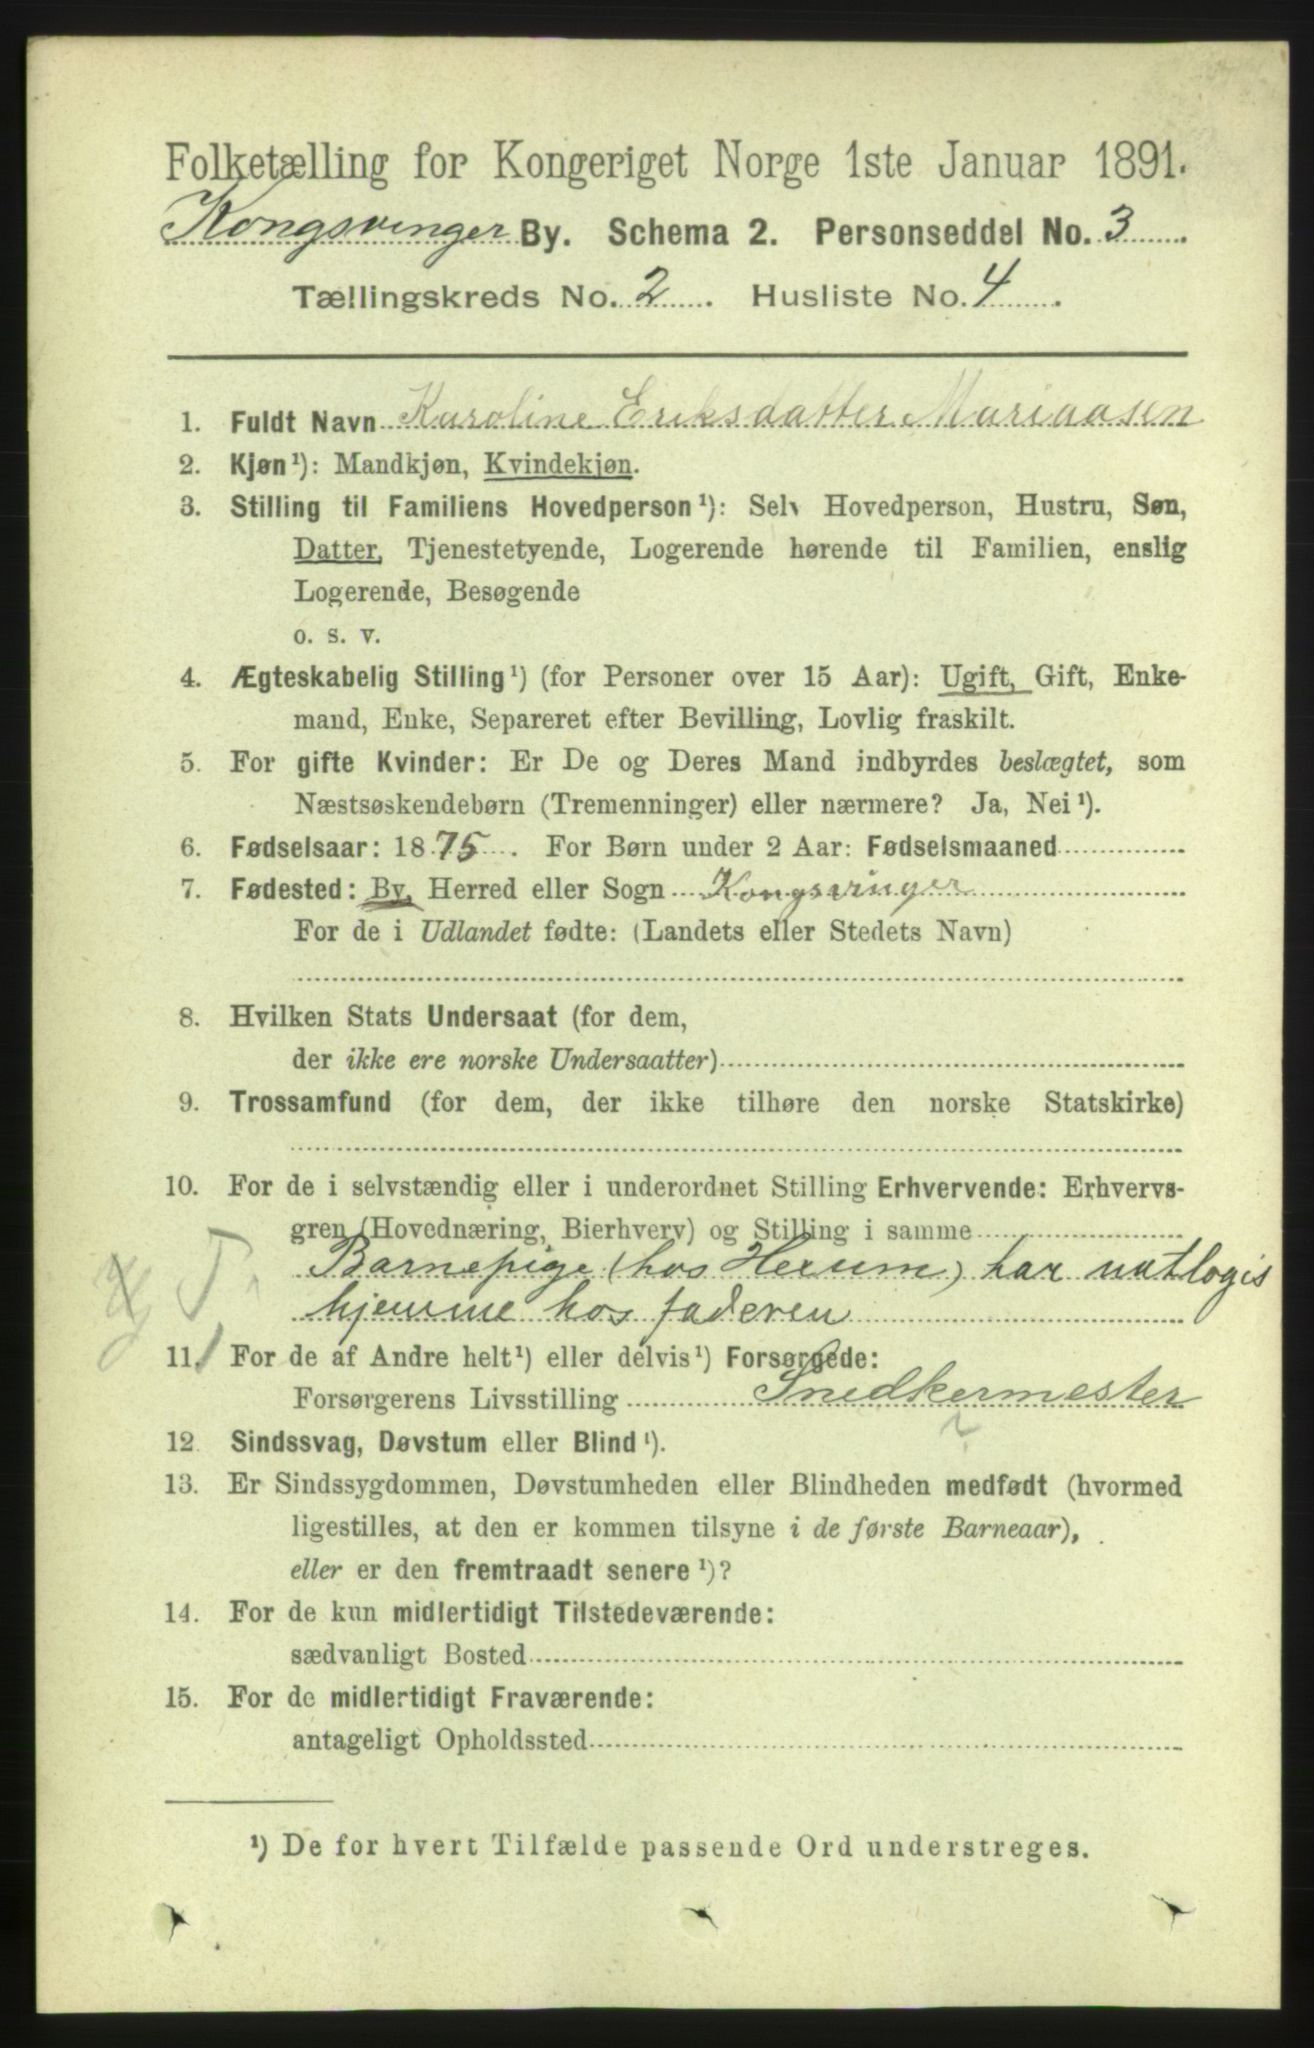 Folketælling for Kongeriget Norge 1ste Januar 1891.
Kongsvinger By. Schema 2. Personseddel No. 3
Tællingskreds No. 2. Husliste No. 4.
1. Fuldt Navn Karoline Eriksdatter Mariaasen
2. Kjøn¹): Mandkjøn, Kvindekjøn.
3. Stilling til Familiens Hovedperson¹): Selv Hovedperson, Hustru, Søn,
Datter, Tjenestetyende, Logerende hørende til Familien, enslig
Logerende, Besøgende
o. s. v.
4. Ægteskabelig Stilling¹) (for Personer over 15 Aar): Ugift, Gift, Enke-
mand, Enke, Separeret efter Bevilling, Lovlig fraskilt.
5. For gifte Kvinder: Er De og Deres Mand indbyrdes beslægtet, som
Næstsøskendebørn (Tremenninger) eller nærmere? Ja, Nei¹).
6. Fødselsaar: 1875. For Børn under 2 Aar: Fødselsmaaned
7. Fødested: By, Herred eller Sogn Kongsvinger
For de i Udlandet fødte: (Landets eller Stedets Navn)
8. Hvilken Stats Undersaat (for dem,
der ikke ere norske Undersaatter)
9. Trossamfund (for dem, der ikke tilhøre den norske Statskirke)
10. For de i selvstændig eller i underordnet Stilling Erhvervende: Erhvervs-
gren (Hovednæring, Bierhverv) og Stilling i samme
T. Barnepige (hos Hexum) har natlogis
hjemme hos faderen
11. For de af Andre helt¹) eller delvis¹) Forsørgede:
Forsørgerens Livsstilling Snedkermester
12. Sindssvag, Døvstum eller Blind¹).
13. Er Sindssygdommen, Døvstumheden eller Blindheden medfødt (hvormed
ligestilles, at den er kommen tilsyne i de første Barneaar),
eller er den fremtraadt senere¹)?
14. For de kun midlertidigt Tilstedeværende:
sædvanligt Bosted
15. For de midlertidigt Fraværende:
antageligt Opholdssted
¹) De for hvert Tilfælde passende Ord understreges.